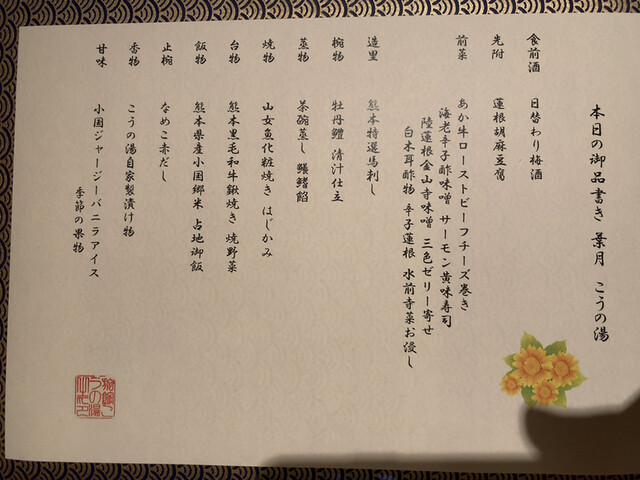 本日の御品書き 葉月 こうの湯
食前酒 日替わり梅酒
先附 蓮根胡麻豆腐
前菜 あか牛ローストビーフチーズ巻き
海老辛子酢味噌 サーモン黄味寿司
陸蓮根金山寺味噌 三色ゼリー寄せ
白木耳酢物 辛子蓮根 水前寺菜お浸し
造里 熊本特選馬刺し
椀物 牡丹鱧 清汁仕立
蒸物 茶碗蒸し 鱶鰭餡
焼物 山女魚化粧焼き はじかみ
台物 熊本黒毛和牛鍬焼き 焼野菜
飯物 熊本県産小国郷米 占地御飯
止椀 なめこ赤だし
香物 こうの湯自家製漬け物
甘味 小国ジャージーバニラアイス
季節の果物